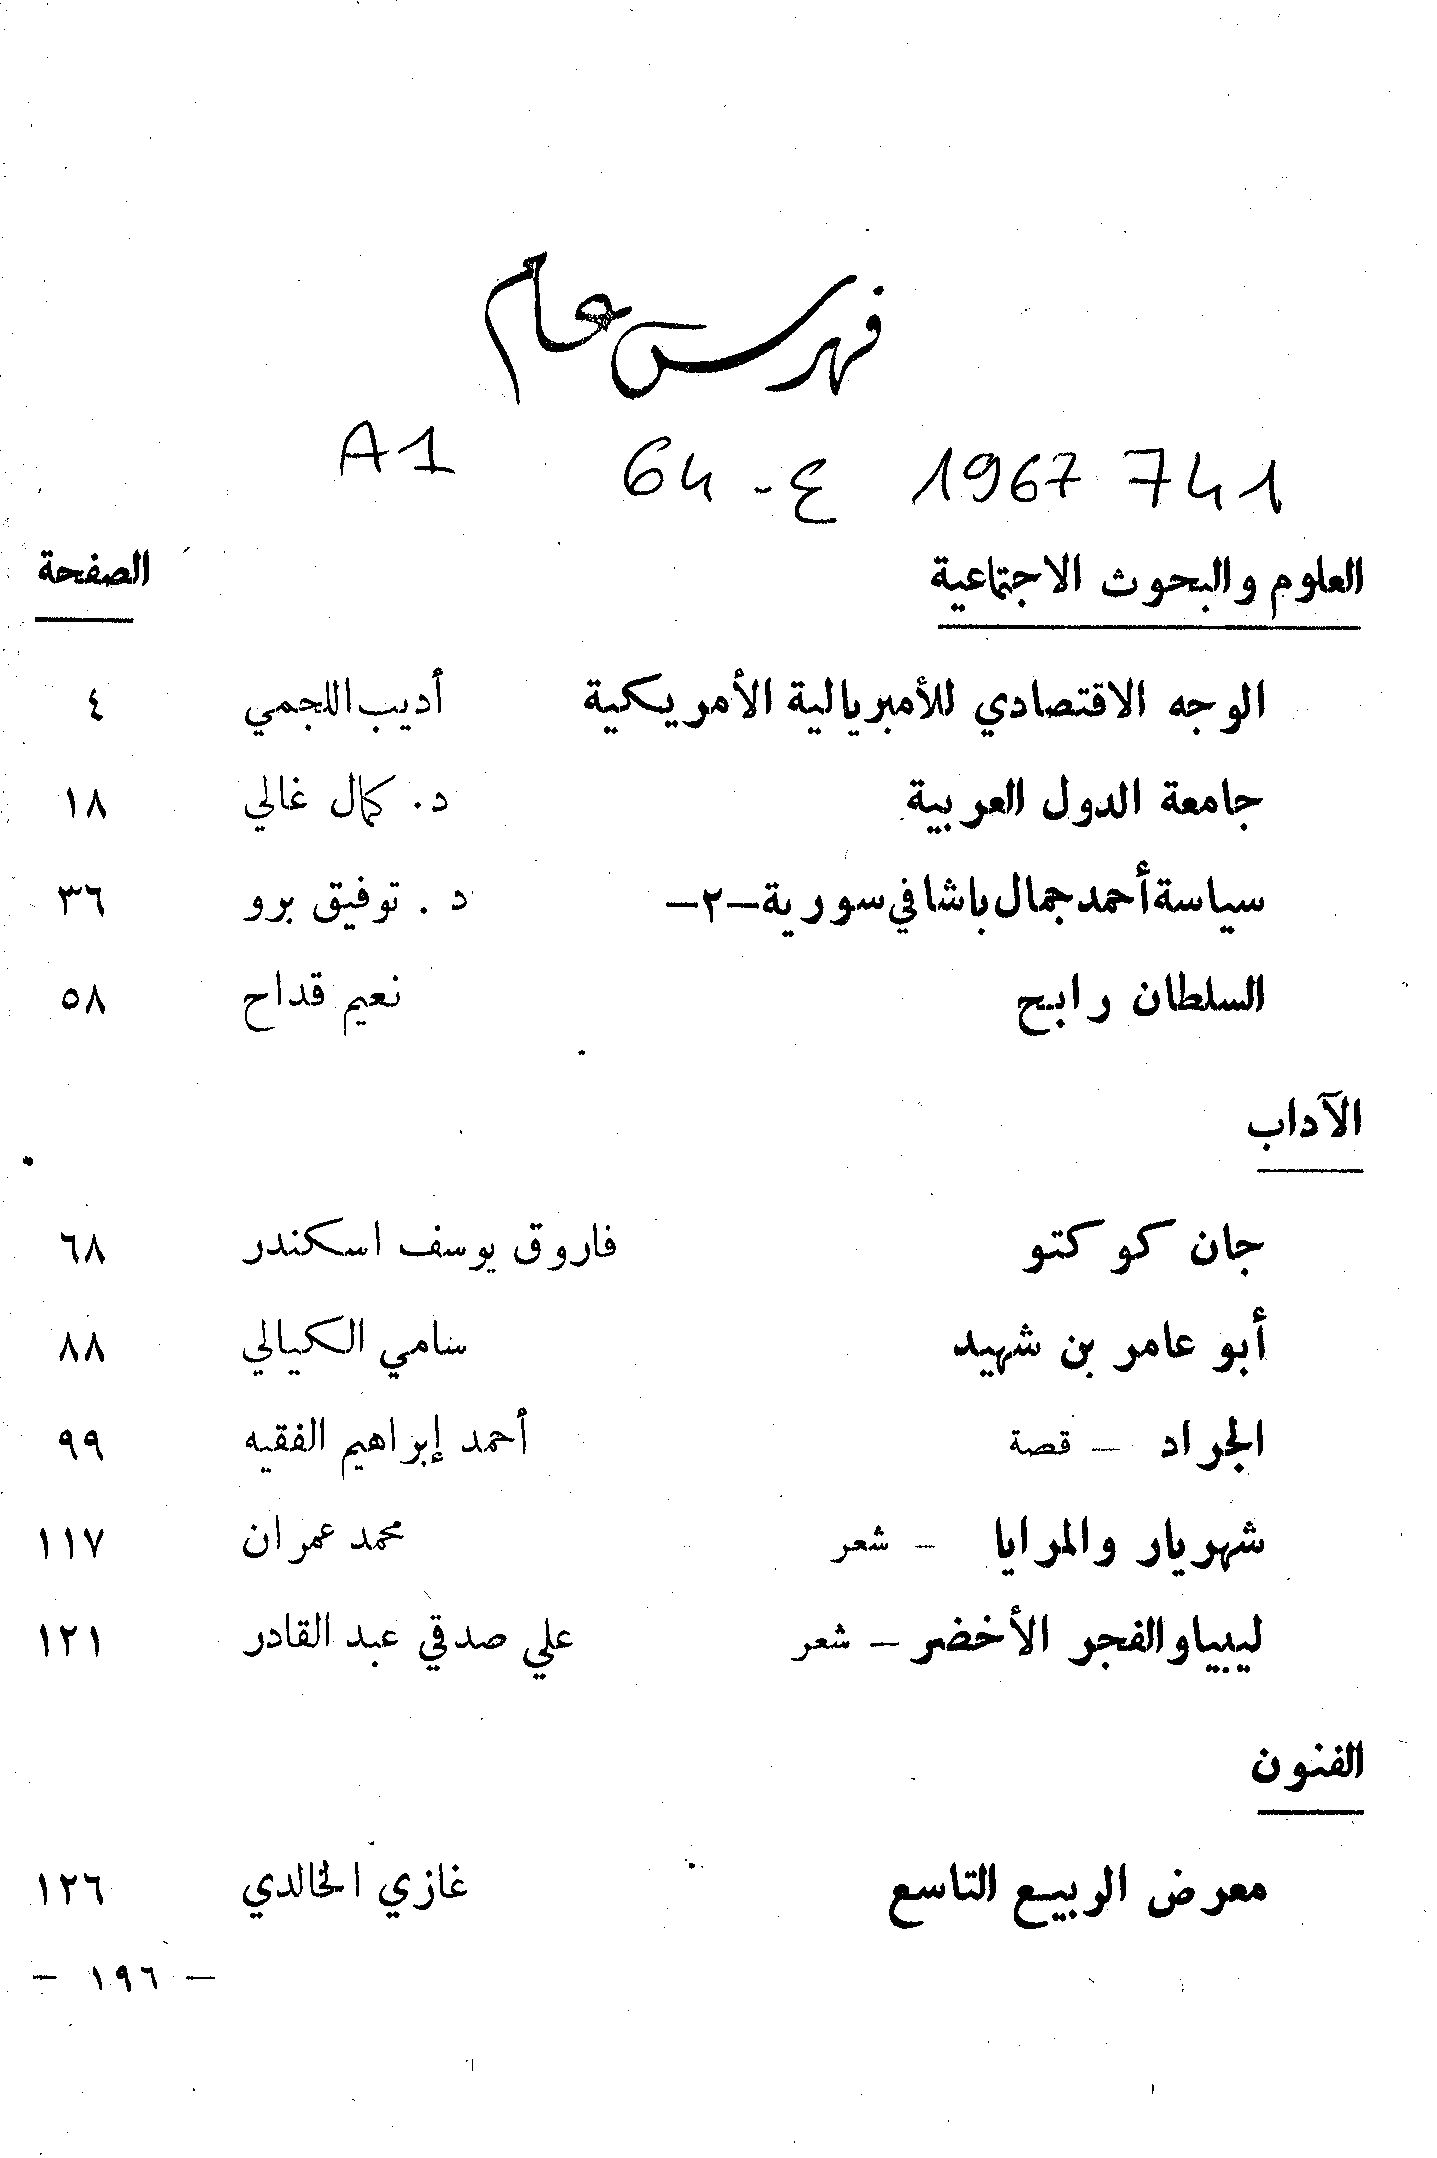 فهرس عام
A1 64 - ع 1967 741
العلوم والبحوث الاجتماعية الصفحة
الوجه الاقتصادي للأمبريالية الأمريكية أديب اللجمي ٤
جامعة الدول العربية د. كمال غالي ١٨
سياسة أحمد جمال باشا في سورية -٢- د. توفيق برو ٣٦
السلطان رابح نعيم قداح ٥٨
الآداب
جان كوكتو فاروق يوسف اسكندر ٦٨
أبو عامر بن شهيد سامي الكيالي ٨٨
الجراد - قصة أحمد إبراهيم الفقيه ٩٩
شهريار والمرايا - شعر محمد عمران ١١٧
ليبيا والفجر الأخضر - شعر علي صدقي عبد القادر ١٢١
الفنون
معرض الربيع التاسع غازي الخالدي ١٢٦
- ١٩٦ -